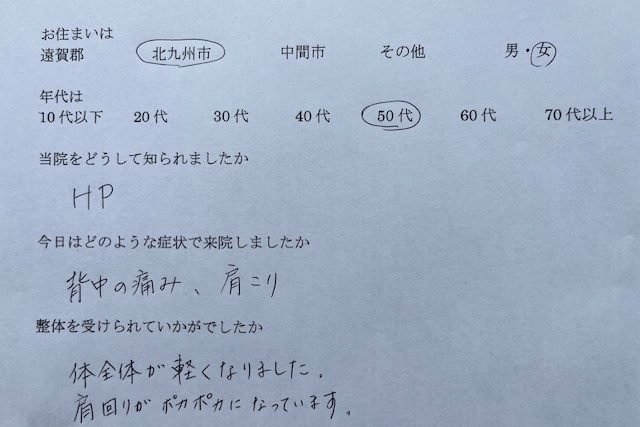 お住まいは
遠賀郡 北九州市 中間市 その他 男・女
年代は
10代以下 20代 30代 40代 50代 60代 70代以上
当院をどうして知られましたか
HP
今日はどのような症状で来院しましたか
背中の痛み、肩こり
整体を受けられていかがでしたか
体全体が軽くなりました。
肩回りがポカポカになっています。